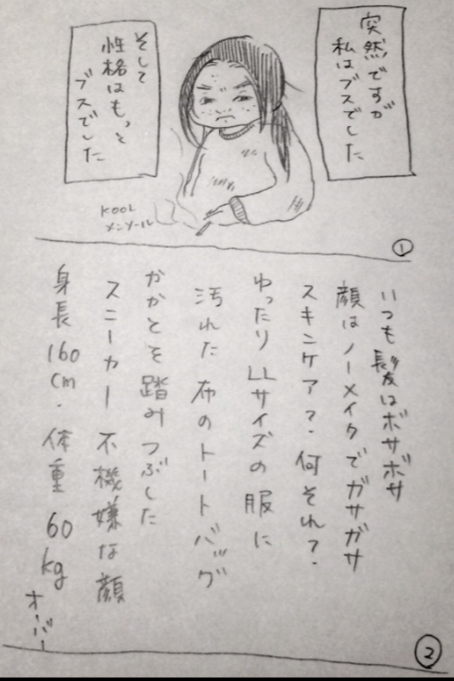 突然ですが
私はブスでした
そして
性格はもっと
ブスでした
KOOL
メンソール
1
いつも髪はボサボサ
顔はノーメイクでガサガサ
スキンケア?何それ?
ゆったりLLサイズの服に
汚れた布のトートバッグ
かかとを踏みつぶした
スニーカー 不機嫌な顔
身長160cm・体重60kg
オーバー
2